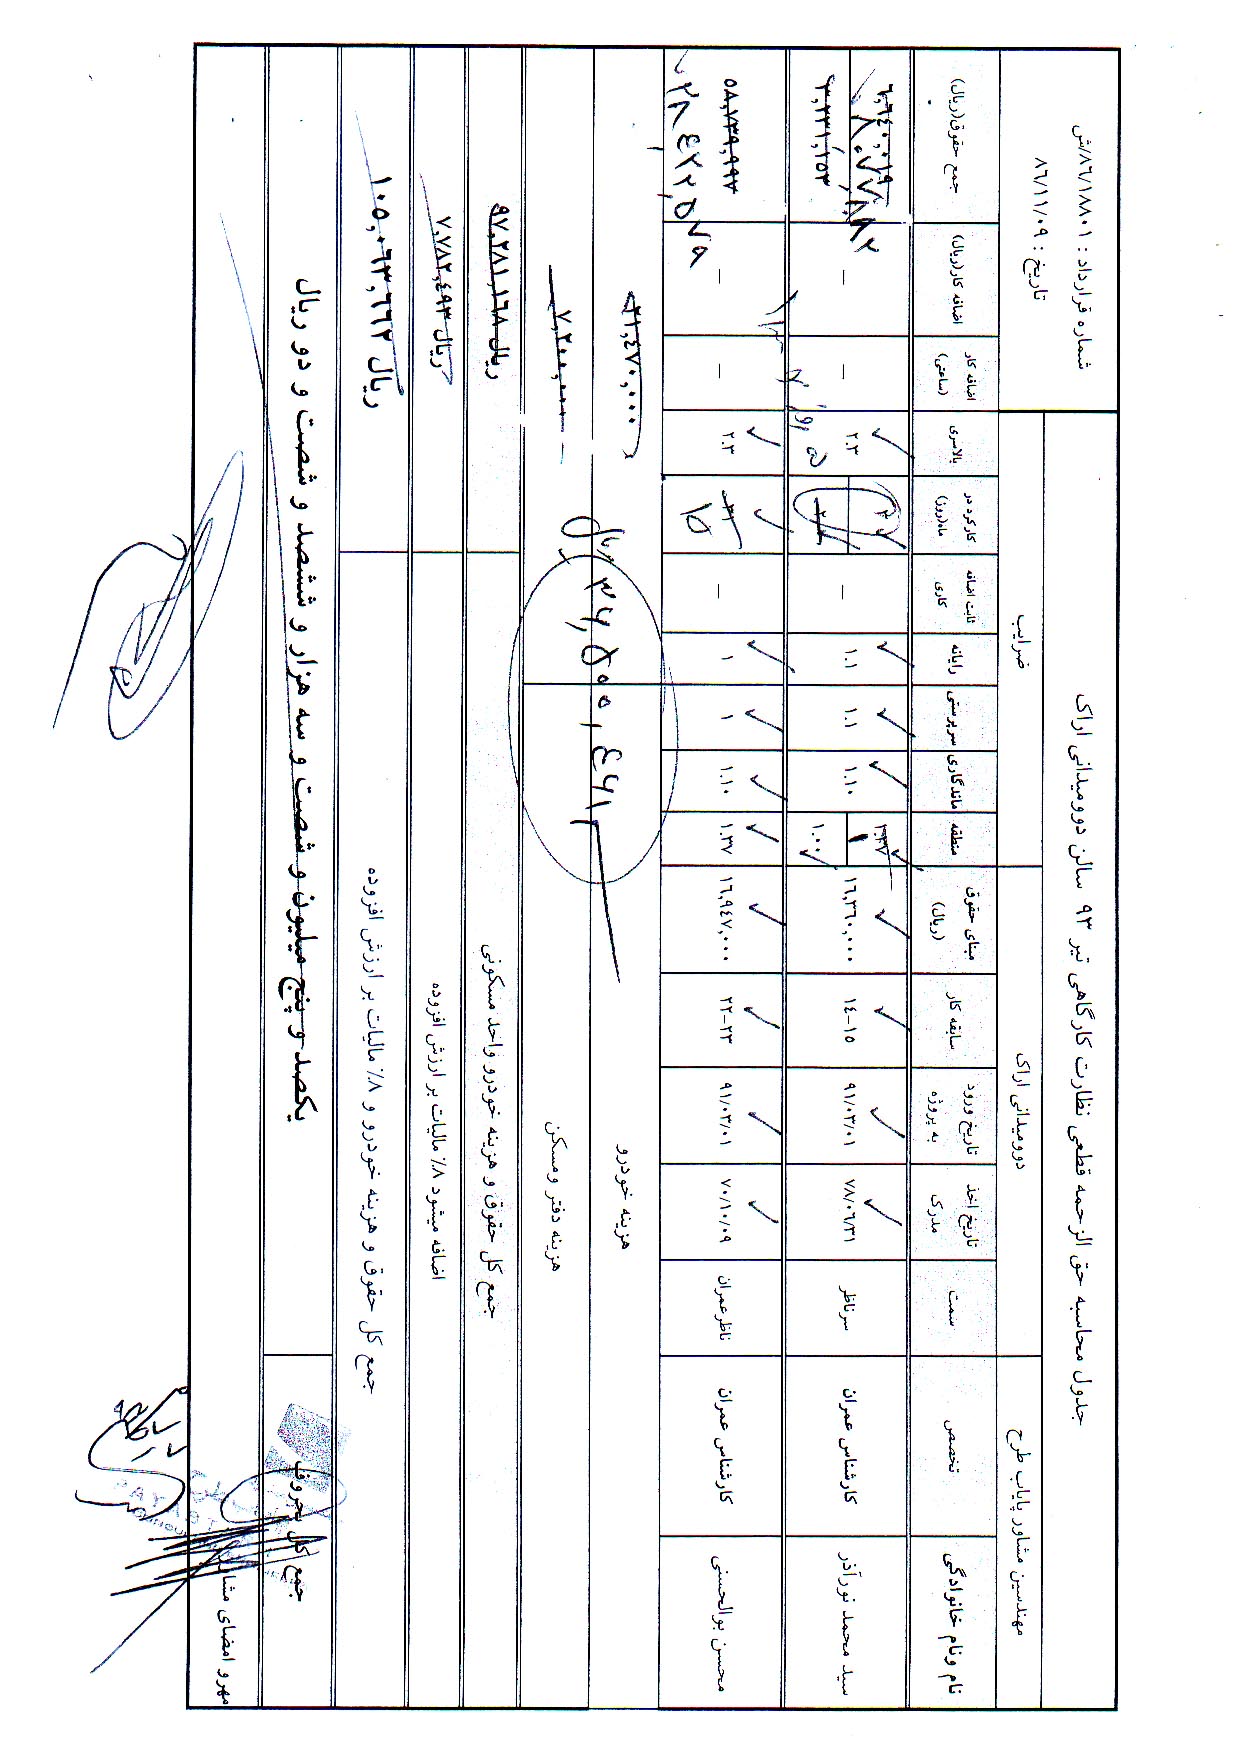 جدول محاسبه حق الزحمه قطعی نظارت کارگاهی تیر ۹۳ سالن دوومیدانی اراک
شماره قرارداد : ۸۶/۱۸۸۰۱/ش
تاریخ : ۸۶/۱۱/۰۹
مهندسین مشاور پایاب طرح
دوومیدانی اراک
ضرایب
نام ونام خانوادگی
تخصص
سمت
تاریخ اخذ مدرک
تاریخ ورود به پروژه
سابقه کار
مبنای حقوق (ریال)
منطقه
ماندگاری
سرپرستی
رایانه
ثابت اضافه کاری
کارکرد در ماه(روز)
بالاسری
اضافه کار (ساعتی)
اضافه کار(ریال)
جمع حقوق(ریال)
سید محمد نورآذر
کارشناس عمران
سرناظر
۷۸/۰۶/۳۱
۹۱/۰۳/۰۱
۱۴-۱۵
۱۶,۳۶۰,۰۰۰
۱.۳۷
۱.۰۰
۱.۱۰
۱.۱
۱.۱
–
۲.۳
–
–
۳,۲۳۱,۱۵۳
محسن بوالحسنی
کارشناس عمران
ناظر عمران
۷۰/۱۰/۰۹
۹۱/۰۳/۰۱
۲۲-۲۳
۱۶,۹۴۷,۰۰۰
۱.۳۷
۱.۱۰
۱
۱
–
۳۱
۱۵
۲.۳
–
–
۵۸,۷۳۹,۹۹۷
۲۸۴۲۲,۵۷۵
هزینه خودرو
۲۱,۴۷۰,۰۰۰
هزینه دفتر ومسکن
۷,۲۰۰,۰۰۰
ریال
۳۶,۵۰۰,۴۶۱
جمع کل حقوق و هزینه خودرو واحد مسکونی
۹۷,۲۸۱,۱۶۸ ریال
اضافه میشود ۸٪ مالیات بر ارزش افزوده
۷,۷۸۲,۴۹۳ ریال
جمع کل حقوق و هزینه خودرو و ۸٪ مالیات بر ارزش افزوده
۱۰۵,۰۶۳,۶۶۲ ریال
جمع کل بحروف
یکصد و پنج میلیون و شصت و سه هزار و ششصد و شصت و دو ریال
مهر و امضای مشاور